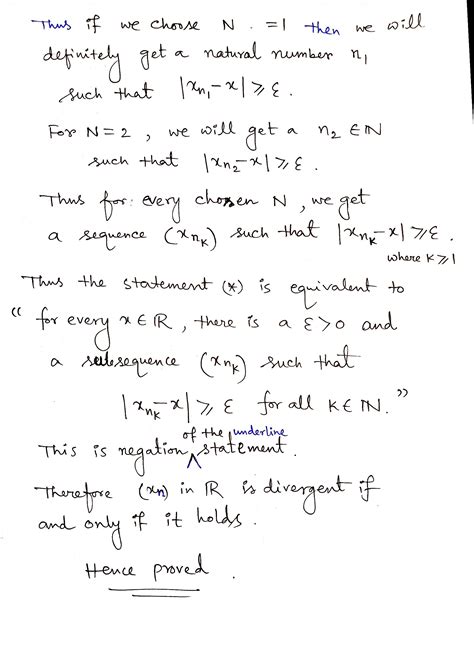 Thus if we choose N = 1 then we will
definitely get a natural number n₁
such that |xₙ₁-x| ⩾ ε.
For N=2, we will get a n₂ ∈ ℕ
such that |xₙ₂-x| ⩾ ε.
Thus for every chosen N, we get
a sequence (xₙₖ) such that |xₙₖ-x| ⩾ ε.
where k ⩾ 1
Thus the statement (*) is equivalent to
“for every x ∈ ℝ, there is a ε > 0 and
a subsequence (xₙₖ) such that
|xₙₖ-x| ⩾ ε for all k ∈ ℕ.”
This is negation of the underline statement.
Therefore (xₙ) in ℝ is divergent if
and only if it holds.
Hence proved.